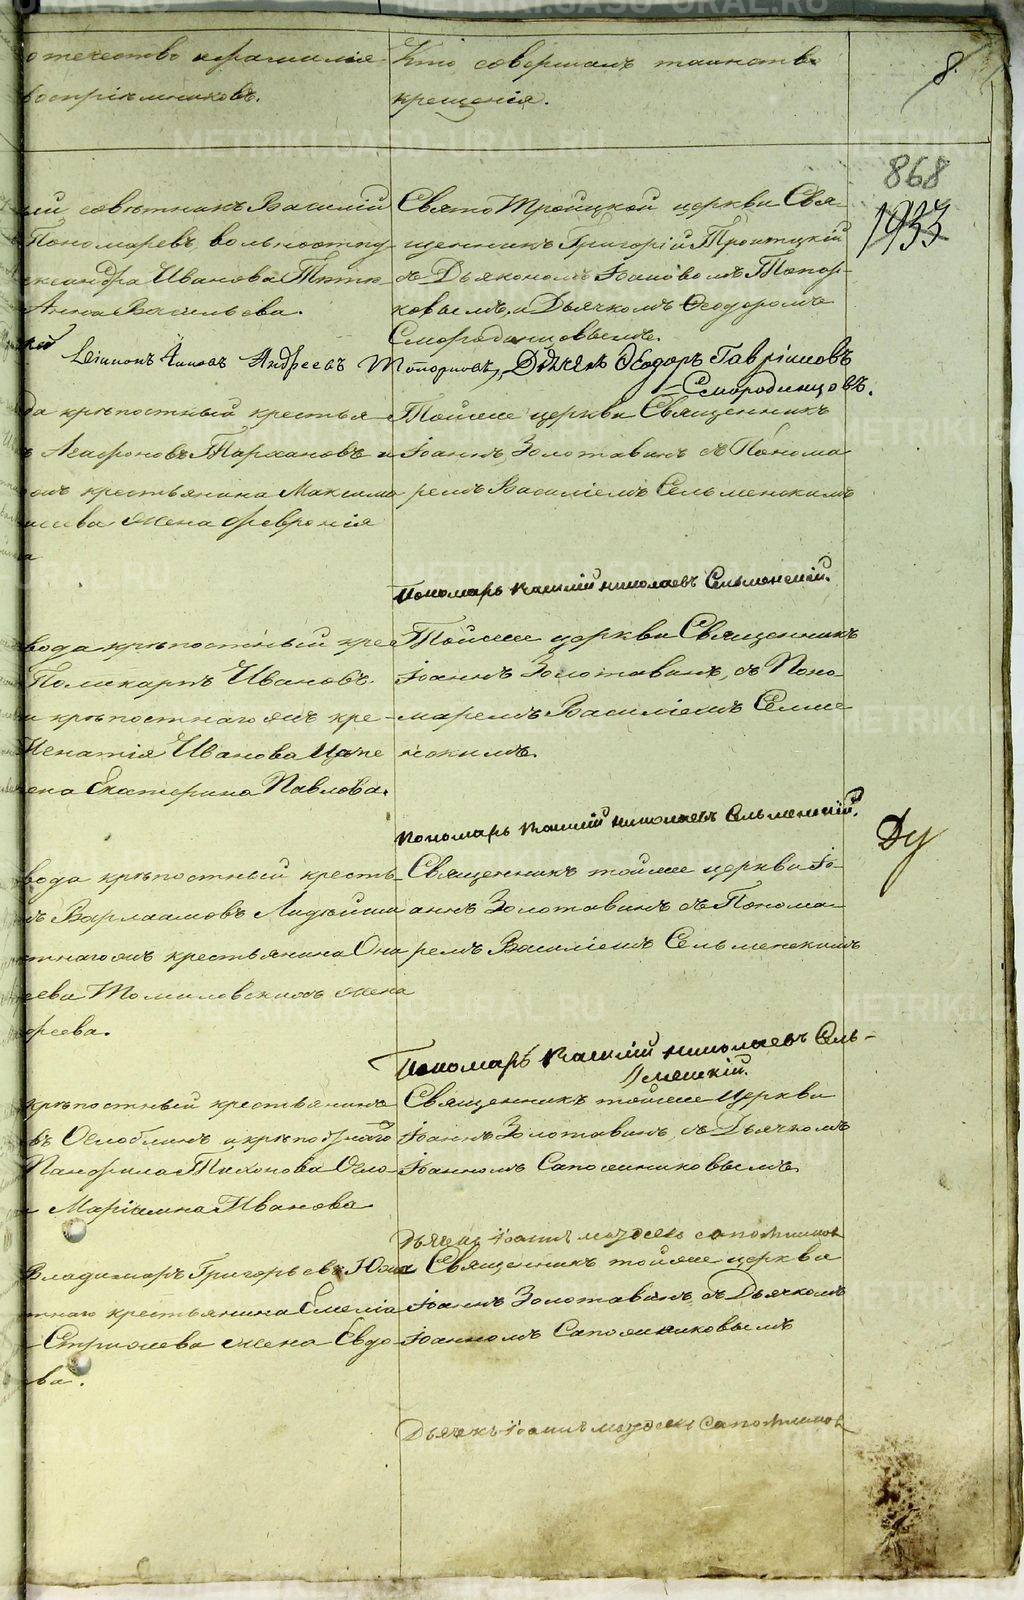 отечество и фамилія
воспріемниковъ.
Кто совершалъ таинство
крещенія.
8.
868
1933
ый совѣтникъ Василій
Пономаревъ, вольноотпу-
ександра Иванова
Анна Васильева.
Свято Троицкой церкви Свя-
щенникъ Григорій Троитцкій
съ Дьякономъ Іоанномъ Топор-
ковымъ, и Дьячкомъ Ѳеодоромъ
Смородинцовымъ.
Діаконъ Андреевъ Топорковъ, Дьячекъ Ѳеодоръ Гавріиловъ
Смородинцовъ.
да крѣпостный крестья
ъ Агафоновъ Тарханов и
омъ крестьянина Максима
сева жена Февронія
а
Тойже церкви Священникъ
Іоаннъ Золотавинъ съ Понома
ремъ Василіемъ Сельменскимъ
Пономарь Василій Николаевъ Сельменскій.
вода крѣпостный кре
Поликарпъ Ивановъ
и крѣпостнаго ихъ кре-
Игнатія Иванова
ена Екатерина Павлова.
Тойже церкви Священникъ
Іоаннъ Золотавинъ, съ Поно-
маремъ Василіемъ Селме
нскимъ.
Пономарь Василій Николаевъ Сельменскій.
Ду
вода крѣпостный кресть-
ъ Варлаамовъ
тнаго ихъ крестьянина
еева Томиловскихъ жена
фѣева.
Священникъ тойже церкви Іо-
аннъ Золотавинъ съ Понома-
ремъ Василіемъ Сельменскимъ
Пономарь Василій Николаевъ Сель-
менскій.
крѣпостный крестьянинъ
въ Оглоблинъ и крѣпостнаго
Панфила Тихонова Огло-
Маріамна Иванова
Священникъ тойже Церкви
Іоаннъ Золотавинъ, съ Дьячкомъ
Іоанномъ Сапожниковымъ
Дьячекъ Іоаннъ Сапожниковъ
Владимиръ Григорьевъ
тнаго крестьянина Емелia
Стрижева жена Евдо-
ва.
Священникъ тойже церкви
Іоаннъ Золотавинъ, съ Дьячкомъ
Іоанномъ Сапожниковымъ
Дьячекъ Іоаннъ Сапожниковъ